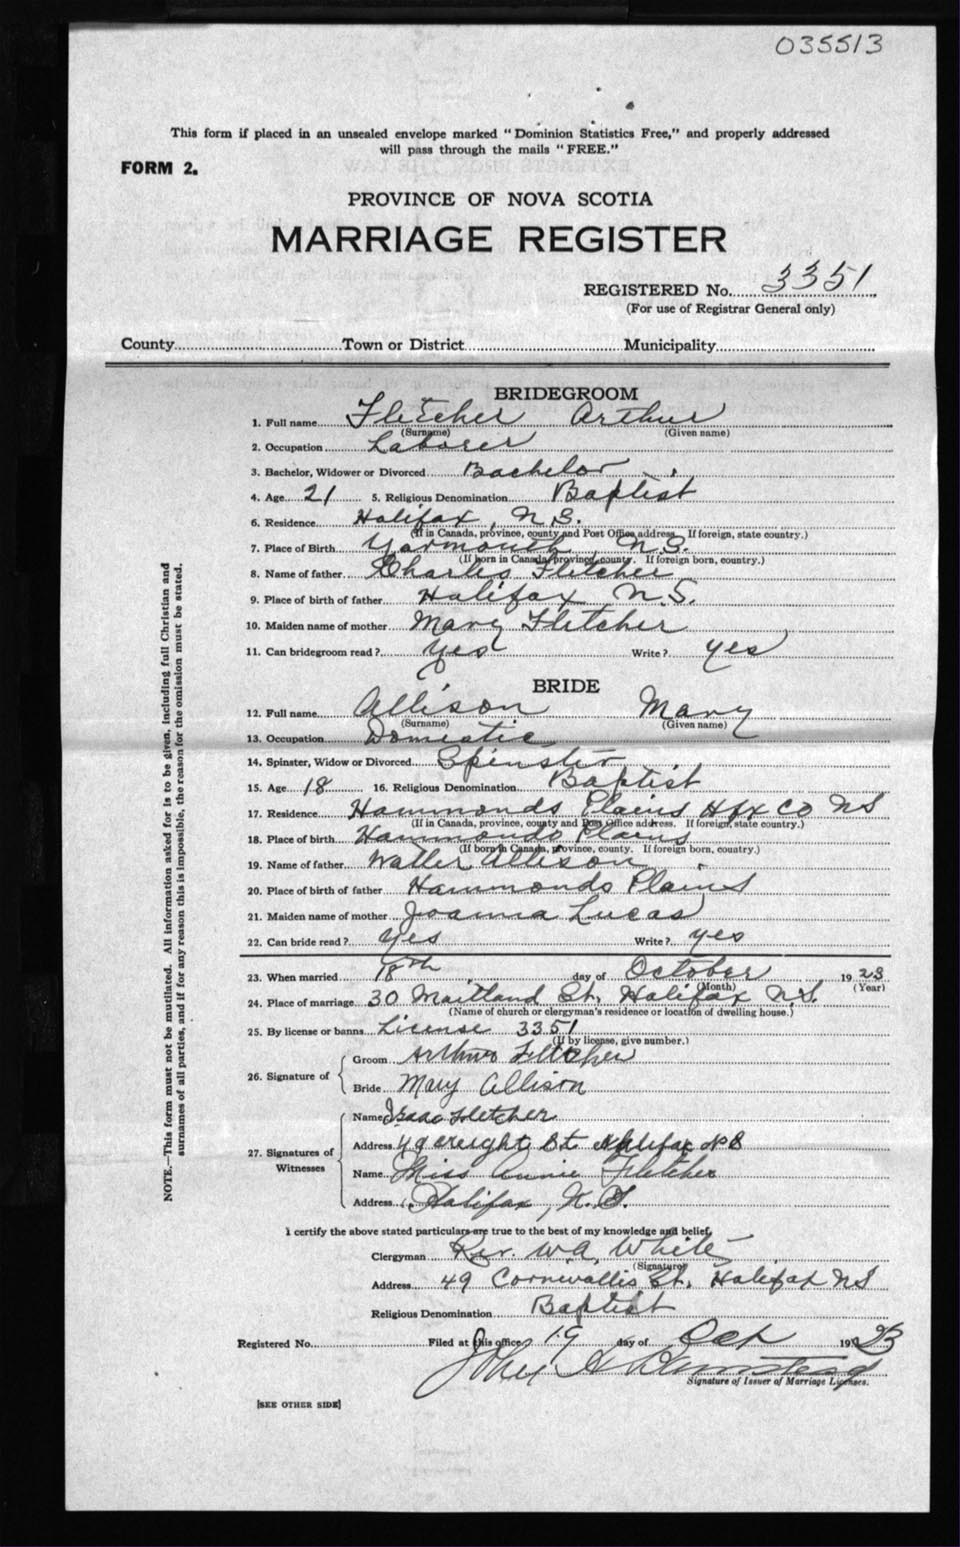 035513
This form if placed in an unsealed envelope marked "Dominion Statistics Free," and properly addressed
will pass through the mails "FREE."
FORM 2.
PROVINCE OF NOVA SCOTIA
MARRIAGE REGISTER
REGISTERED No. 3351
(For use of Registrar General only)
County Town or District Municipality
BRIDEGROOM
1. Full name Fletcher Arthur
(Surname) (Given name)
2. Occupation Laborer
3. Bachelor, Widower or Divorced Bachelor
4. Age 21 5. Religious Denomination Baptist
6. Residence Halifax, N.S.
(If in Canada, province, county and Post Office address. If foreign, state country.)
7. Place of Birth Yarmouth N.S.
(If born in Canada, province, county. If foreign born, country.)
8. Name of father Charles Fletcher
9. Place of birth of father Halifax N.S.
10. Maiden name of mother Mary Fletcher
11. Can bridegroom read? Yes Write? yes
BRIDE
12. Full name Allison Mary
(Surname) (Given name)
13. Occupation Domestic
14. Spinster, Widow or Divorced Spinster
15. Age 18 16. Religious Denomination Baptist
17. Residence Hammonds Plains Hfx Co NS
(If in Canada, province, county and Post Office address. If foreign, state country.)
18. Place of birth Hammonds Plains
(If born in Canada, province, county. If foreign born, country.)
19. Name of father Walter Allison
20. Place of birth of father Hammonds Plains
21. Maiden name of mother Joanna Lucas
22. Can bride read? yes Write? yes
23. When married 18th day of October 1923
(Month) (Year)
24. Place of marriage 30 Maitland St. Halifax N.S.
(Name of church or clergyman's residence or location of dwelling house.)
25. By license or banns License 3351
(If by license, give number.)
26. Signature of
Groom Arthur Fletcher
Bride Mary Allison
27. Signatures of Witnesses
Name Isaac Fletcher
Address 49 St Halifax NS
Name Miss Annie Fletcher
Address Halifax, N.S.
I certify the above stated particulars are true to the best of my knowledge and belief.
Clergyman Rev. W.A. White
(Signature)
Address 49 Cornwallis St. Halifax NS
Religious Denomination Baptist
Registered No. Filed at this office 19 day of Oct 1923
John A
Signature of Issuer of Marriage Licenses.
[SEE OTHER SIDE]
NOTE.—This form must not be mutilated. All information asked for is to be given, including full Christian and
surnames of all parties, and if for any reason this is impossible, the reason for the omission must be stated.